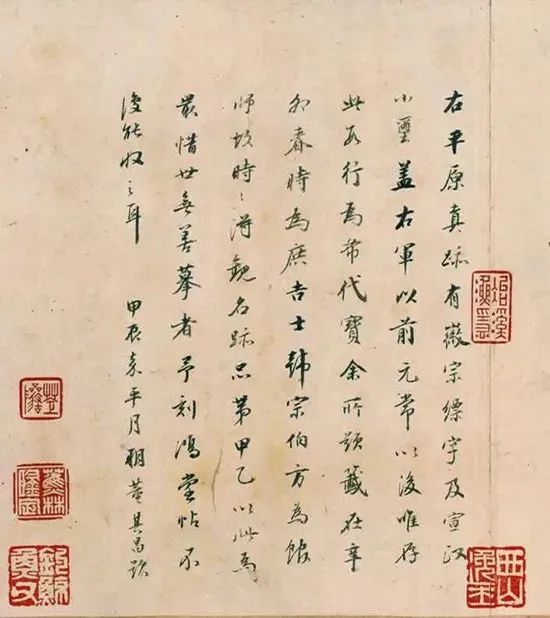 右平原真跡有徽宗縹字及宣汉
小璽蓋右軍以前元常以後唯存
此數行為希代寶余所題籤在辛
卯春時為庶吉士韓宗伯方為館
師故時〻得觀名跡品第甲乙以此為
最惜世無善摹者予刻鴻堂帖不
復能收之耳 甲辰嘉平月朔董其昌題
冶溪漁隱